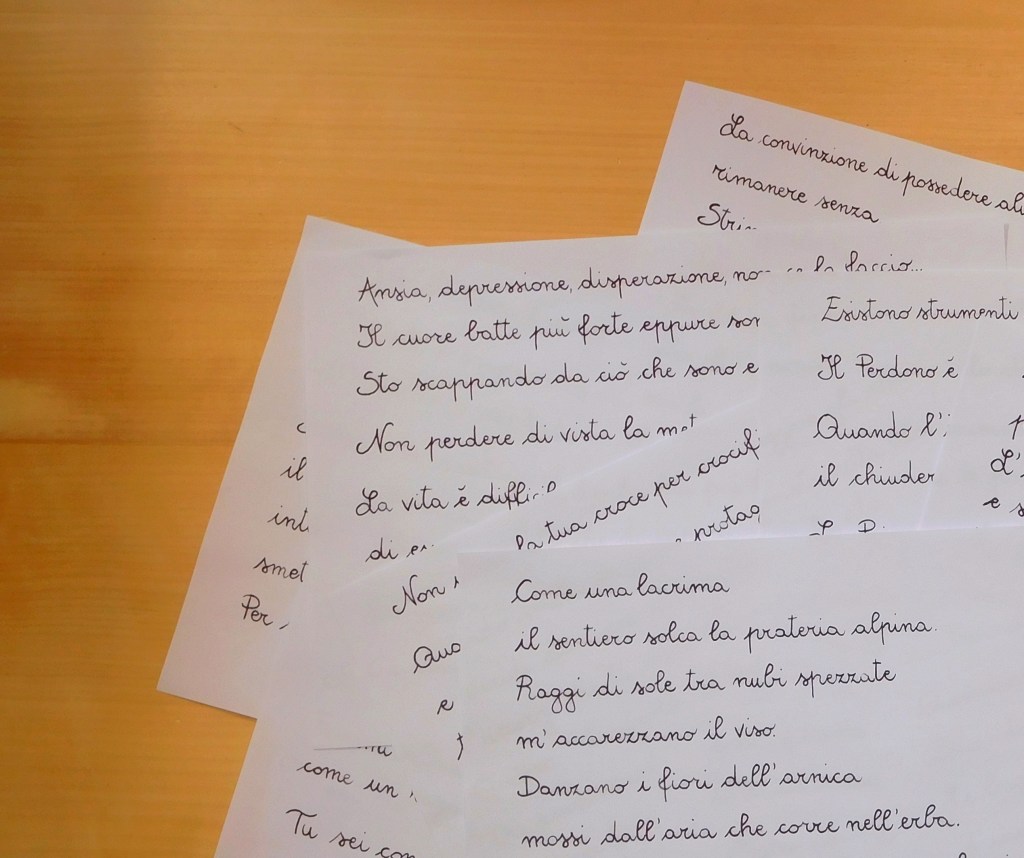 La convinzione di possedere
rimanere senza
Ansia, depressione, disperazione,
Il cuore batte più forte eppure
Sto scappando da ciò che sono e
Non perdere di vista la
La vita è
di
Esistono strumenti
Il Perdono è
Quando l'
il chiuder
L'
e
la tua croce per
il
Per
Non
e
Come una lacrima
il sentiero solca la prateria alpina.
Raggi di sole tra nubi spezzate
m'accarezzano il viso.
Danzano i fiori dell'arnica
mossi dall'aria che corre nell'erba.
come un
Tu sei